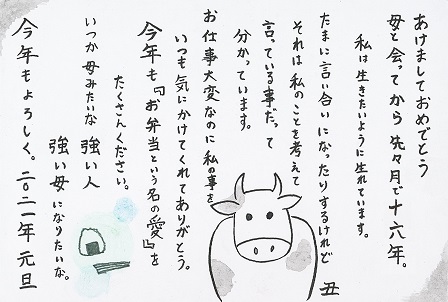 あけましておめでとう
母と会ってから先々月で十六年。
私は生きたいように生れています。
たまに言い合いになったりするけれど
それは私のことを考えて
言っている事だって
分かっています。
お仕事大変なのに私の事を
いつも気にかけてくれてありがとう。
今年も『お弁当という名の愛』を
たくさんください。
いつか母みたいな強い人
強い母になりたいな。
今年もよろしく。二〇二一年元旦
丑